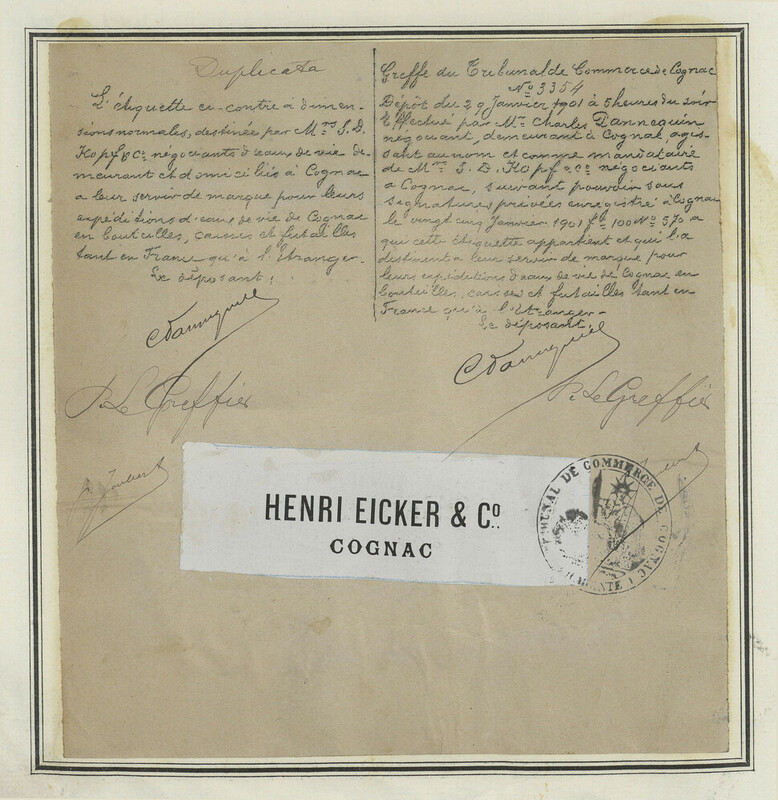 Duplicata
L'étiquette ci-contre a dimen-
sions normales, destinée par Mrs S. D.
Kopf & Co négociants d'eaux de vie de-
meurant et domiciliés à Cognac
a leur servir de marque pour leurs
expéditions d'eaux de vie de Cognac
en bouteilles, caisses et futailles
tant en France qu'à l'Etranger.
Le déposant:
CDannequin
P. Le Greffier
Joubert
Greffe du Tribunal de Commerce de Cognac
No 3354
Dépôt du 29 Janvier 1901 à 5 heures du soir
Effectué par Mr Charles Dannequin
négociant, demeurant à Cognac, agis-
sant au nom et comme mandataire
de Mrs S. D. Kopf & Co négociants
a Cognac, suivant pouvoir sous
signatures privées enregistré à Cognac
le vingt cinq Janvier 1901 fo 100 No 570 a
qui cette étiquette appartient et qui l'a
destinent a leur servir de marque pour
leurs expéditions d'eaux de vie de Cognac en
bouteilles, caisses et futailles tant en
France qu'à l'Etranger-
Le déposant,
CDannequin
P. Le Greffier
HENRI EICKER & Co.
COGNAC
TRIBUNAL DE COMMERCE DE COGNAC